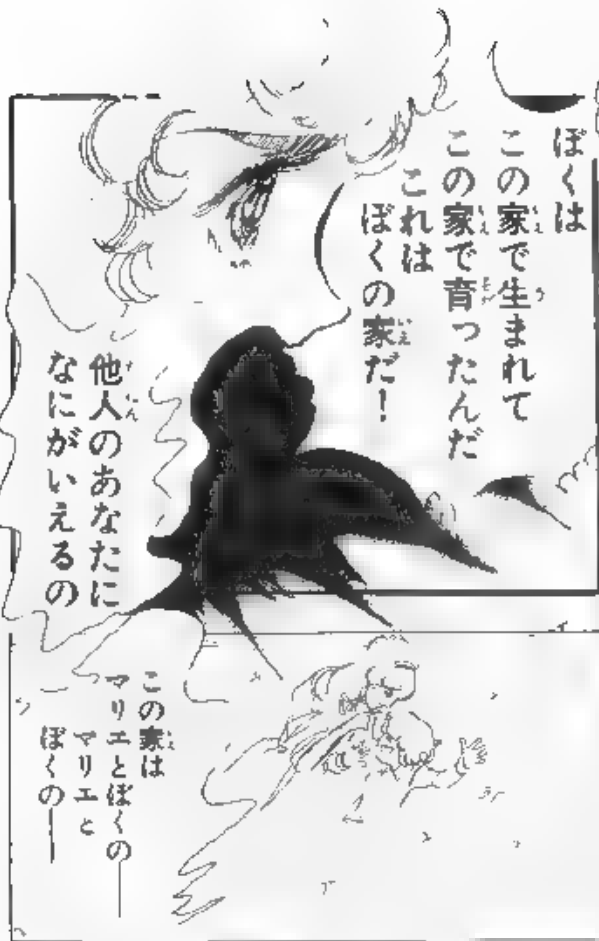 ぼくは
この家で生まれて
この家で育ったんだ
これは
ぼくの家だ！
他人のあなたに
なにがいえるの
この家は
マリエとぼくの――
マリエと
ぼくの――